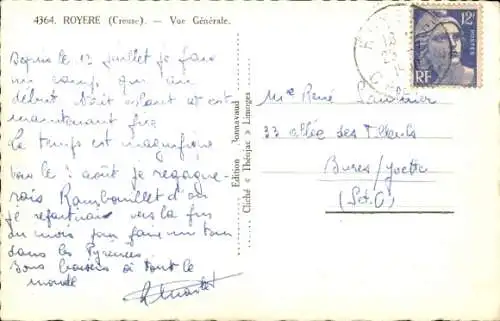 4364. ROYERE (Creuse). — Vue Générale.
Depuis le 12 juillet je fais
un camp qui au
début était volant et est
maintenant fixe
Le temps est magnifique
vers le 1 août je regagne-
rais Rambouillet d'où
je repartirais vers la fin
du mois pour faire un tour
dans les Pyrénées
Bons baisers à tout le
monde
Edition Jonnavaud
Cliché « Théojac » Limoges
12F
POSTES
RF
Mr René
33 allée des Tilleuls
Bures/Yvette
(S.et.O)